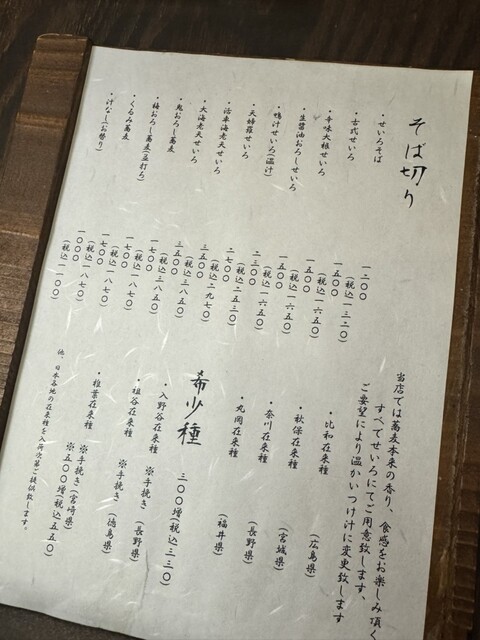 そば切り
・せいろそば
一二〇〇
(税込一三二〇)
・古式せいろ
一五〇〇
(税込一六五〇)
・辛味大根せいろ
一五〇〇
(税込一六五〇)
・生醤油おろしせいろ
一五〇〇
(税込一六五〇)
・鴨汁せいろ(温汁)
二三〇〇
(税込二五三〇)
・天婦羅せいろ
二七〇〇
(税込二九七〇)
・活車海老天せいろ
三五〇〇
(税込三八五〇)
・大海老天せいろ
三五〇〇
(税込三八五〇)
・鬼おろし蕎麦
一七〇〇
(税込一八七〇)
・梅おろし蕎麦(並打ち)
一七〇〇
(税込一八七〇)
・くるみ蕎麦
一七〇〇
(税込一八七〇)
・汁なし(お替り)
一〇〇〇
(税込一一〇〇)
当店では蕎麦本来の香り、食感をお楽しみ頂く
すべてせいろにてご用意致します、
ご要望により温かいつけ汁に変更致します
・比和在来種
(広島県)
・秋保在来種
(宮城県)
・奈川在来種
(長野県)
・丸岡在来種
(福井県)
希少種
三〇〇増(税込三三〇)
・入野谷在来種
※手挽き(長野県)
・祖谷在来種
※手挽き(徳島県)
・椎葉在来種
※手挽き(宮崎県)
※五〇〇増(税込五五〇)
他、日本各地の在来種を入荷次第ご提供致します。